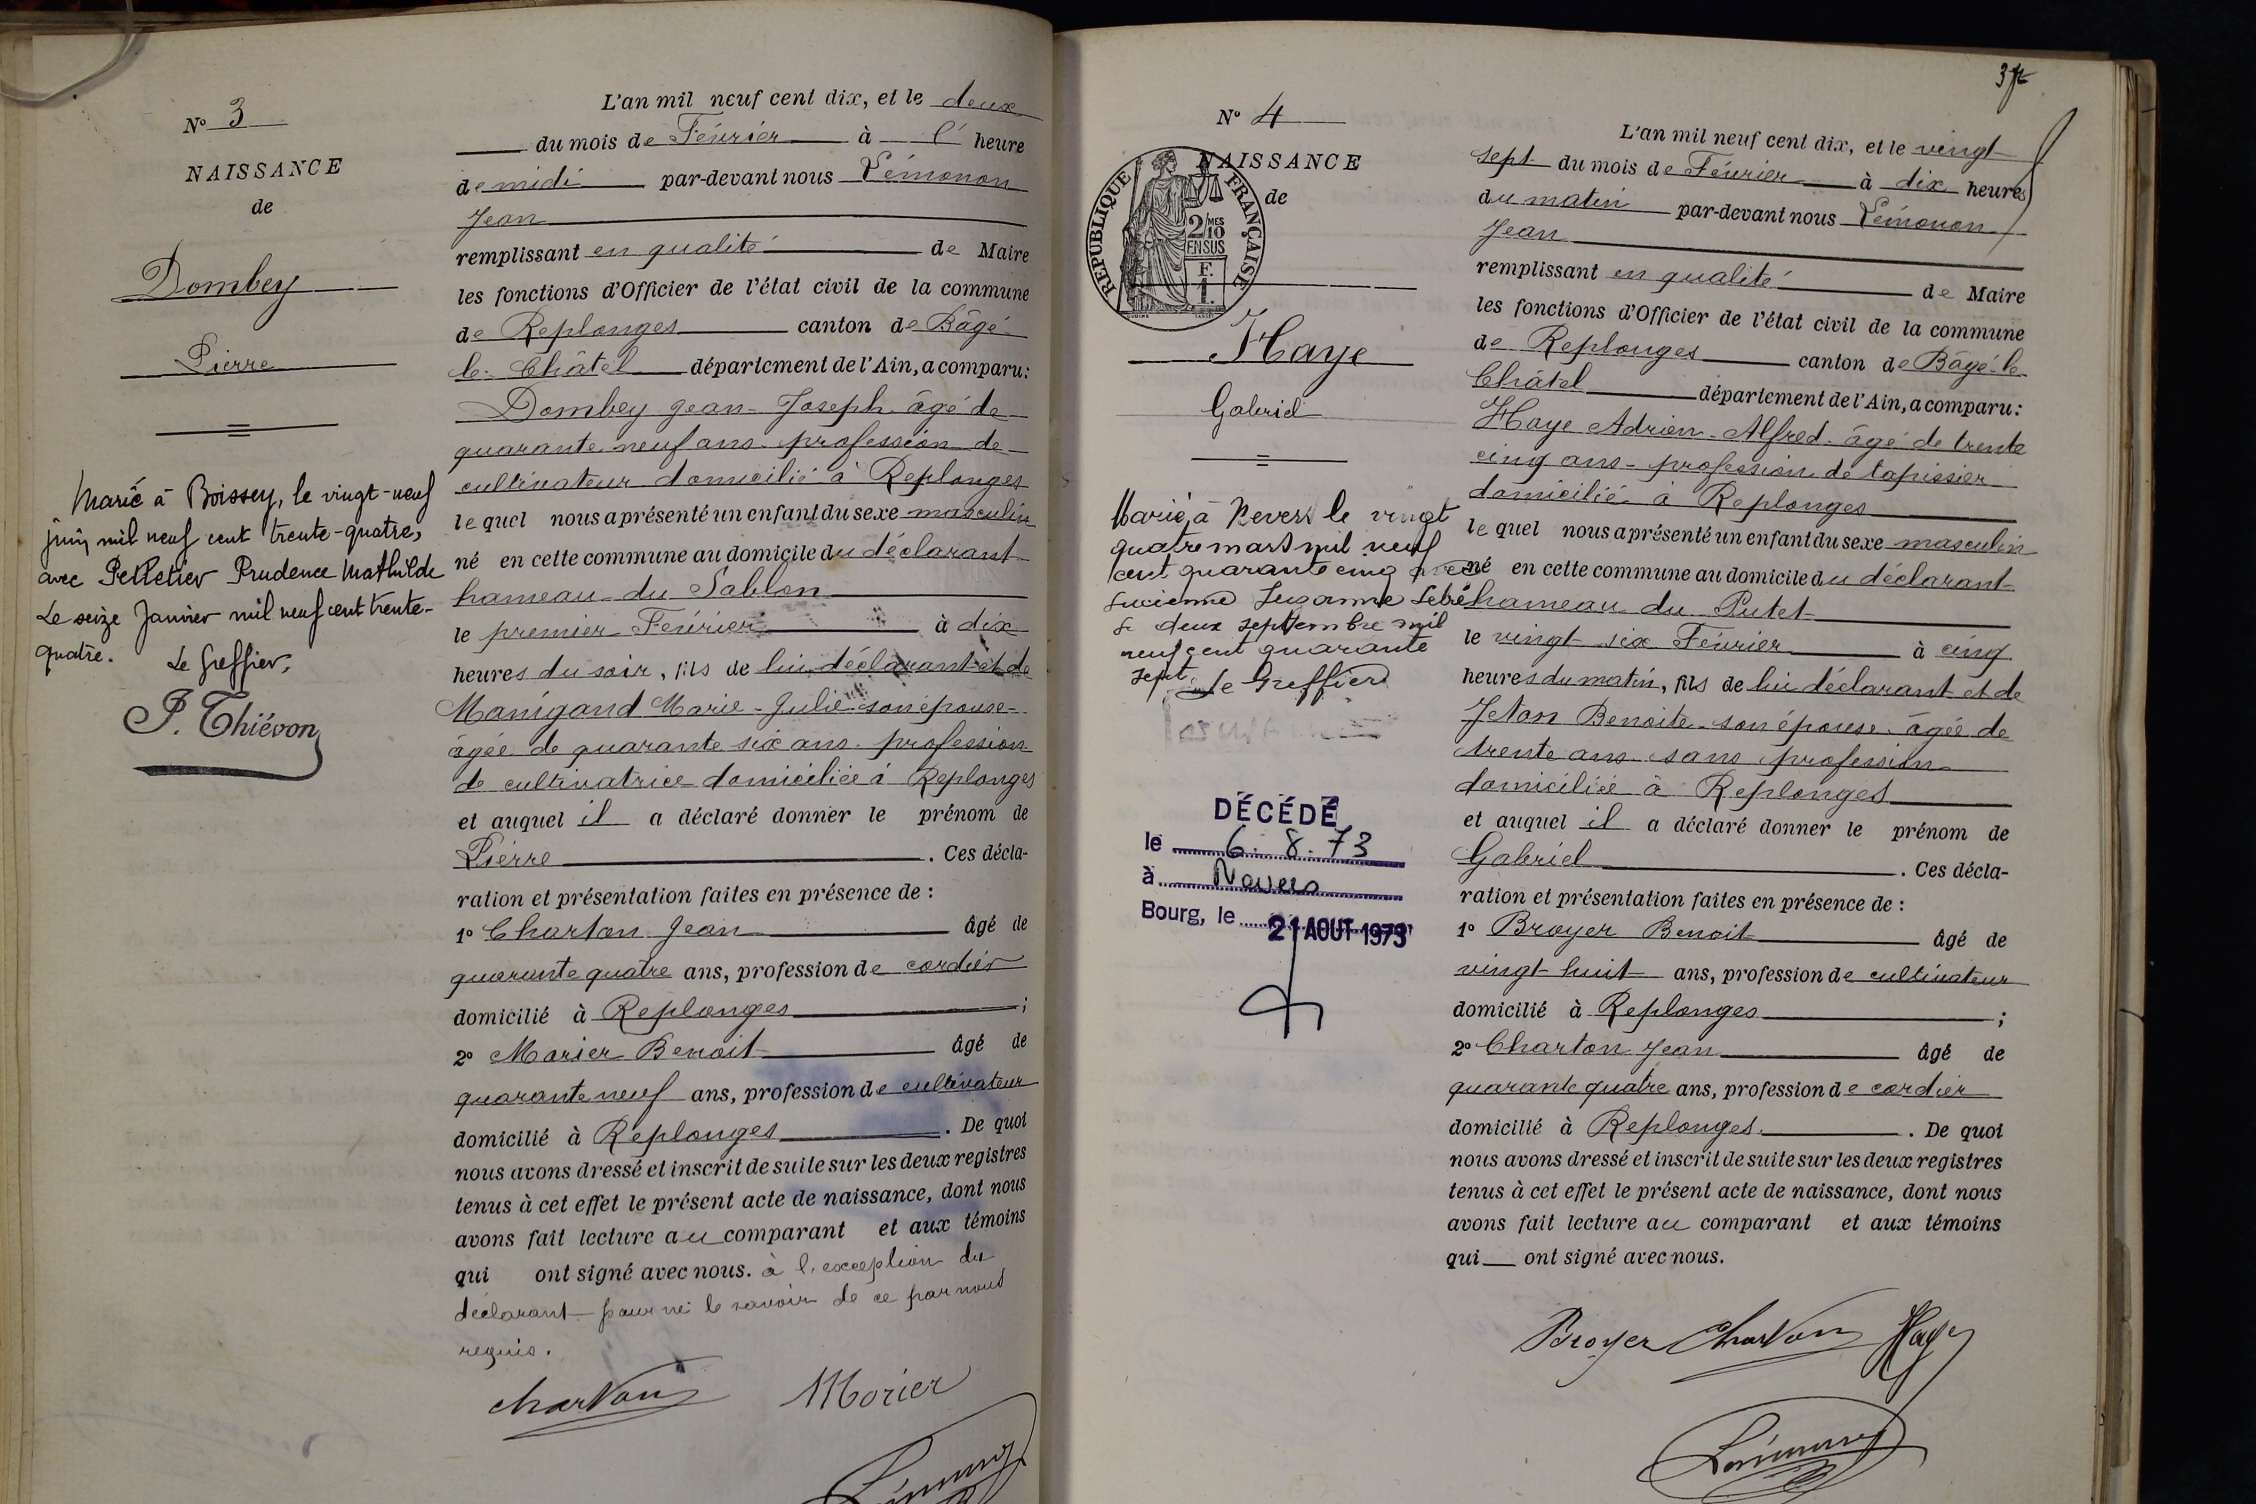 N° 3
NAISSANCE
de
Dombey
Pierre
Marié à Boissey, le vingt-neuf
juin mil neuf cent trente-quatre,
avec Pelletier Prudence Mathilde
Le seize Janvier mil neuf cent trente-
quatre. Le Greffier,
P. Thiévon
L'an mil neuf cent dix, et le deux
du mois de Février à l' heure
de midi par-devant nous Lémonon
Jean
remplissant en qualité de Maire
les fonctions d'Officier de l'état civil de la commune
de Replonges canton de Bâgé
le Châtel département de l'Ain, a comparu:
Dombey Jean-Joseph âgé de
quarante neuf ans profession de
cultivateur domicilié à Replonges
lequel nous a présenté un enfant du sexe masculin
né en cette commune au domicile du déclarant
hameau du Sablon
le premier Février à dix
heures du soir, fils de lui déclarant et de
Manigand Marie-Julie son épouse
âgée de quarante six ans profession
de cultivatrice domiciliée à Replonges
et auquel il a déclaré donner le prénom de
Pierre . Ces décla-
ration et présentation faites en présence de :
1° Charton Jean âgé de
quarante quatre ans, profession de cordier
domicilié à Replonges ;
2° Morier Benoit âgé de
quarante neuf ans, profession de cultivateur
domicilié à Replonges . De quoi
nous avons dressé et inscrit de suite sur les deux registres
tenus à cet effet le présent acte de naissance, dont nous
avons fait lecture au comparant et aux témoins
qui ont signé avec nous. à l'exception du
déclarant pour ne le savoir de ce par nous
requis.
Charton Morier
Lémonon
N° 4
NAISSANCE
de
REPUBLIQUE FRANÇAISE
2/10 MES
EN SUS
F.
1.
Haye
Gabriel
Marié à Nevers le vingt
quatre mars mil neuf
cent quarante cinq avec
Lucienne Suzanne
deux septembre mil
neuf cent quarante
sept. Le Greffier
DÉCÉDÉ
le 6. 8. 73
à Nevers
Bourg, le 21 AOUT 1973
L'an mil neuf cent dix, et le vingt
sept du mois de Février à dix heures
du matin par-devant nous Lémonon
Jean
remplissant en qualité de Maire
les fonctions d'Officier de l'état civil de la commune
de Replonges canton de Bâgé-le
Châtel département de l'Ain, a comparu:
Haye Adrien-Alfred âgé de trente
cinq ans profession de tapissier
domicilié à Replonges
lequel nous a présenté un enfant du sexe masculin
né en cette commune au domicile du déclarant
hameau du Putet
le vingt six Février à cinq
heures du matin, fils de lui déclarant et de
Jeton Benoite son épouse âgée de
trente ans sans profession
domiciliée à Replonges
et auquel il a déclaré donner le prénom de
Gabriel . Ces décla-
ration et présentation faites en présence de :
1° Broyer Benoit âgé de
vingt huit ans, profession de cultivateur
domicilié à Replonges ;
2° Charton Jean âgé de
quarante quatre ans, profession de cordier
domicilié à Replonges . De quoi
nous avons dressé et inscrit de suite sur les deux registres
tenus à cet effet le présent acte de naissance, dont nous
avons fait lecture au comparant et aux témoins
qui ont signé avec nous.
Broyer Charton Haye
Lémonon